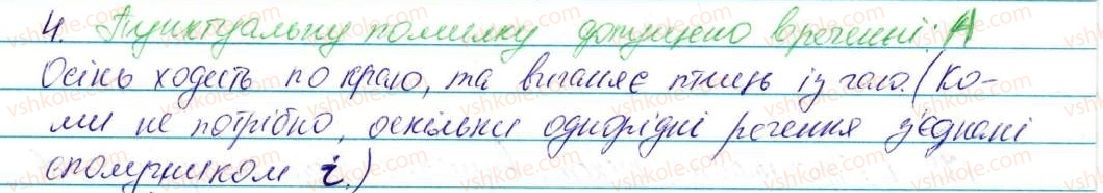 4. Пунктуальну помилку допущено в реченні: А
Осінь ходить по краю, та виганяє птиць із гаю. (Ко-
ми не потрібно, оскільки однорідні речення з'єднані
сполучником і.)